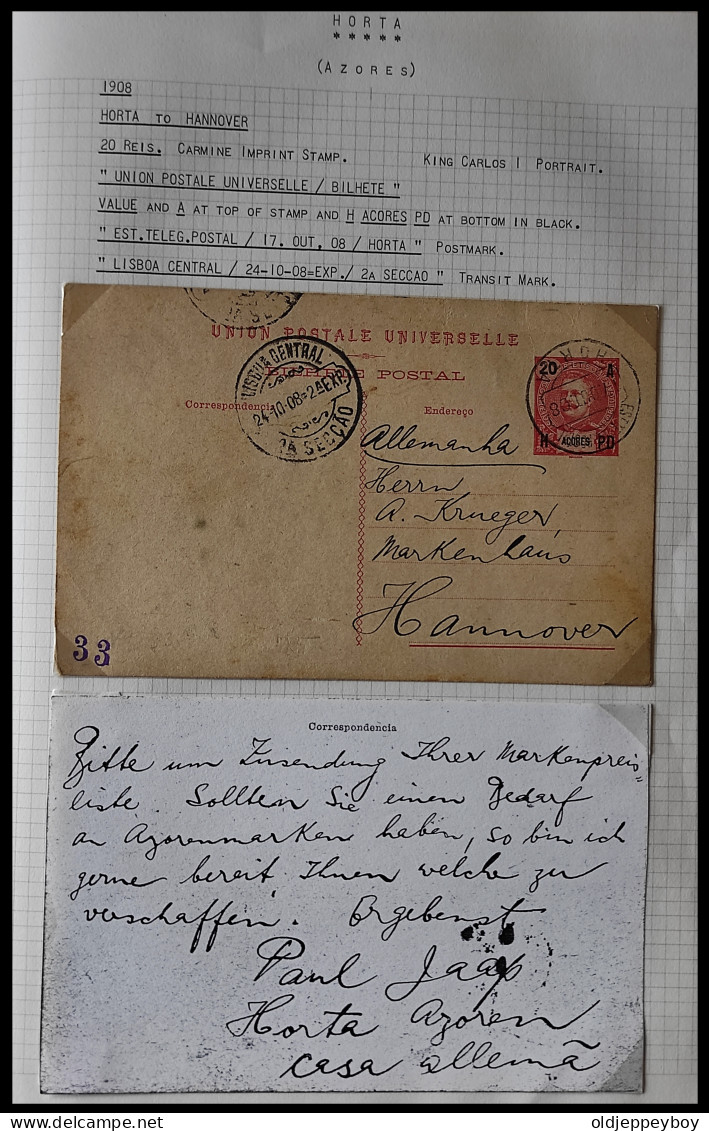 HORTA
*****
(AZORES)
1908
HORTA TO HANNOVER
20 REIS. CARMINE IMPRINT STAMP. KING CARLOS I PORTRAIT.
" UNION POSTALE UNIVERSELLE / BILHETE "
VALUE AND A AT TOP OF STAMP AND H ACORES PD AT BOTTOM IN BLACK.
" EST.TELEG.POSTAL / 17. OUT, 08 / HORTA " POSTMARK.
" LISBOA CENTRAL / 24-10-08=EXP./ 2A SECCAO " TRANSIT MARK.
UNION POSTALE UNIVERSELLE
BILHETE POSTAL
LISBOA CENTRAL
24-10-08=2AEXP.
SECCAO
Correspondencia
Endereço
20 A
H AÇORES PD
HORTA
Allemanha
Herrn
A. Krueger,
Markenhaus
Hannover
33
Correspondencia
Bitte um Zusendung Ihrer Markenpreis=
liste. Sollten Sie einen Bedarf
an Azorenmarken haben, so bin ich
gerne bereit Ihnen welche zu
verschaffen. Ergebenst
Paul Jaap
Horta Azoren
casa allemã
oldjeppeyboy